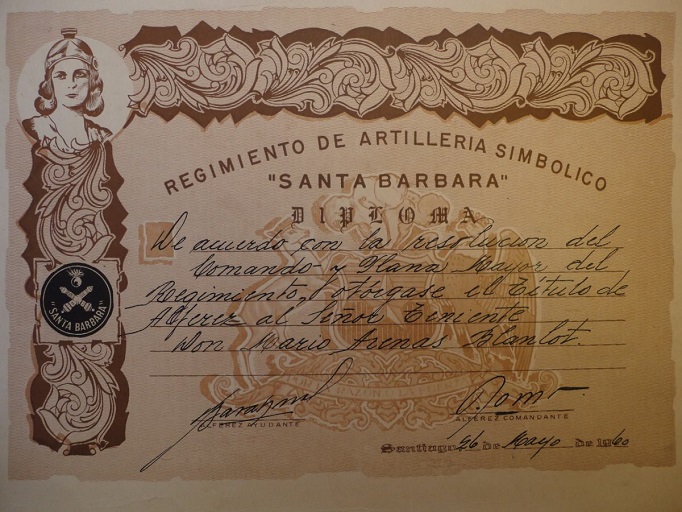 REGIMIENTO DE ARTILLERIA SIMBOLICO
"SANTA BARBARA"
DIPLOMA
De acuerdo con la resolucion del
Comando y Plana Mayor del
Regimiento, otorgase el Título de
Alferez al Señor Teniente
Don Mario Arenas Blanlot.
"SANTA BARBARA"
ALFEREZ AYUDANTE
ALFEREZ COMANDANTE
Santiago 26 de Mayo de 1960